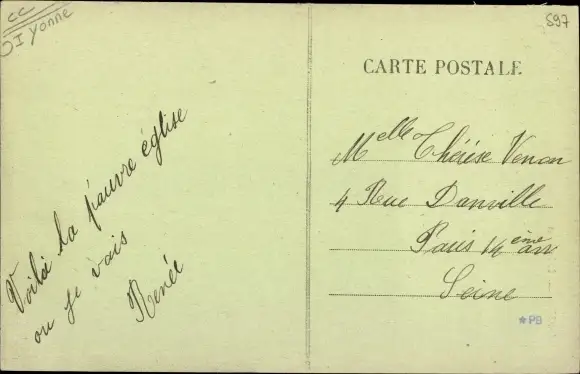 CC
OI Yonne
597
CARTE POSTALE
Voilà la pauvre église
ou je vais
Renée
Melle Thérèse Venon
4 Rue Danville
Paris 14ème arr
Seine
★PB